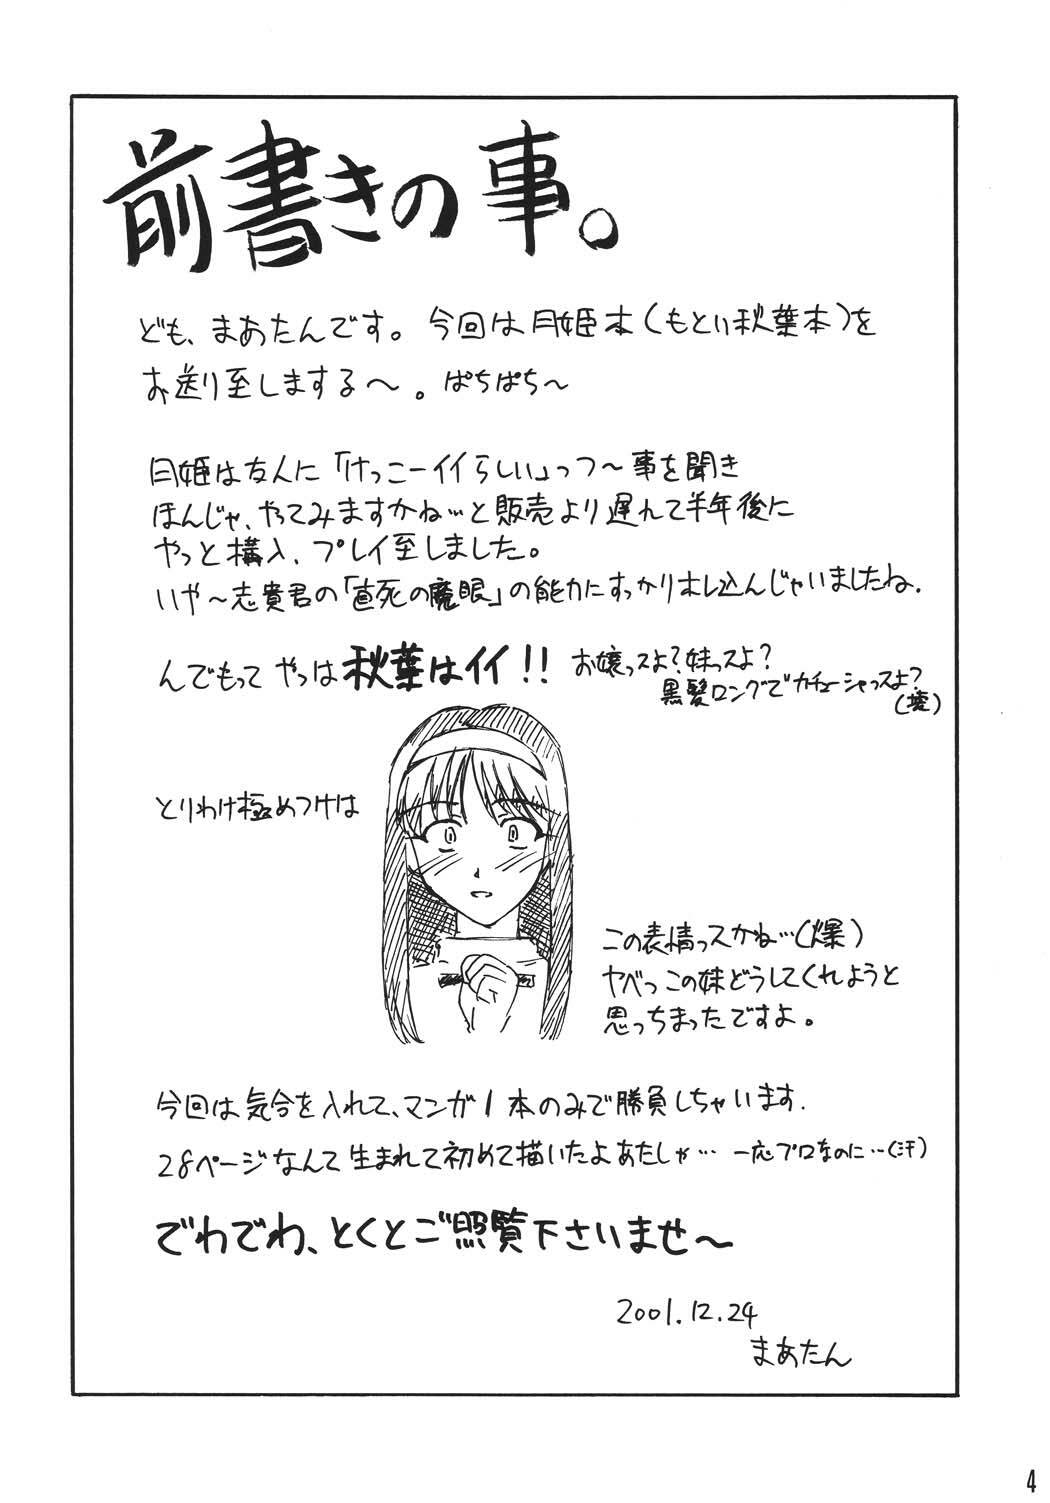 前書きの事。
ども、まあたんです。今回は月姫本(もとい秋葉本)を
お送り至しまする～。ぱちぱち～
月姫は友人に「けっこーイイらしい」っつ～事を聞き
ほんじゃ、やってみますかね…と販売より遅れて半年後に
やっと構入、プレイ至しました。
いや～志貴君の「直死の魔眼」の能力にすっかりホレ込んじゃいましたね.
んでもって やっは秋葉はイイ!! お嬢っスよ?妹っスよ?
黒髪ロングでカチューシャっスよ?
(壊)
とりわけ極めつけは
この表情っスかね…(爆)
ヤベっこの妹どうしてくれようと
思っちまったですよ。
今回は気合を入れて、マンガ1本のみで勝負しちゃいます.
28ページなんて生まれて初めて描いたよあたしゃ… 一応プロなのに…(汗)
でわでわ、とくとご照覧下さいませ～
2001.12.24
まあたん
4